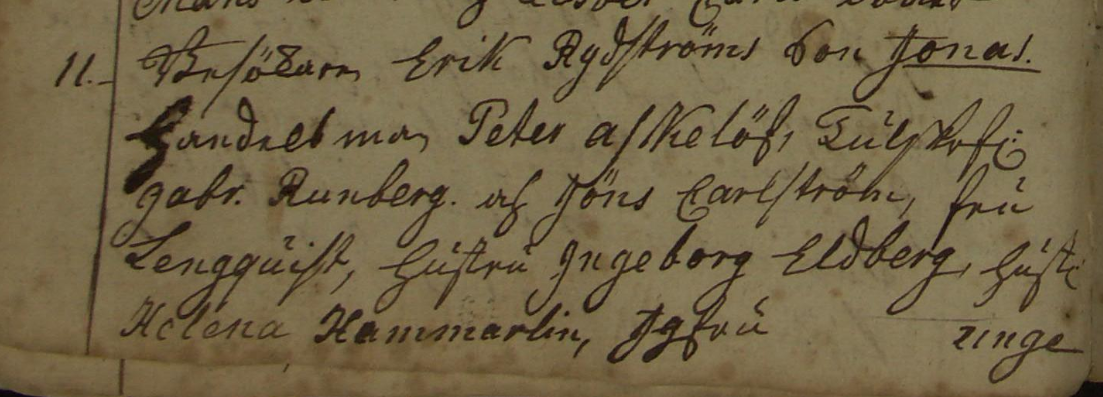 11. Besökaren Erik Rydströms Son Jonas.
Handelsman Peter Askelöf, Tullskrif:
gabr. Runberg. och Jöns Carlström, fru
Lengquist, hustru Ingeborg Eldberg, hust:
Helena Hammarlin, Jgfru unge